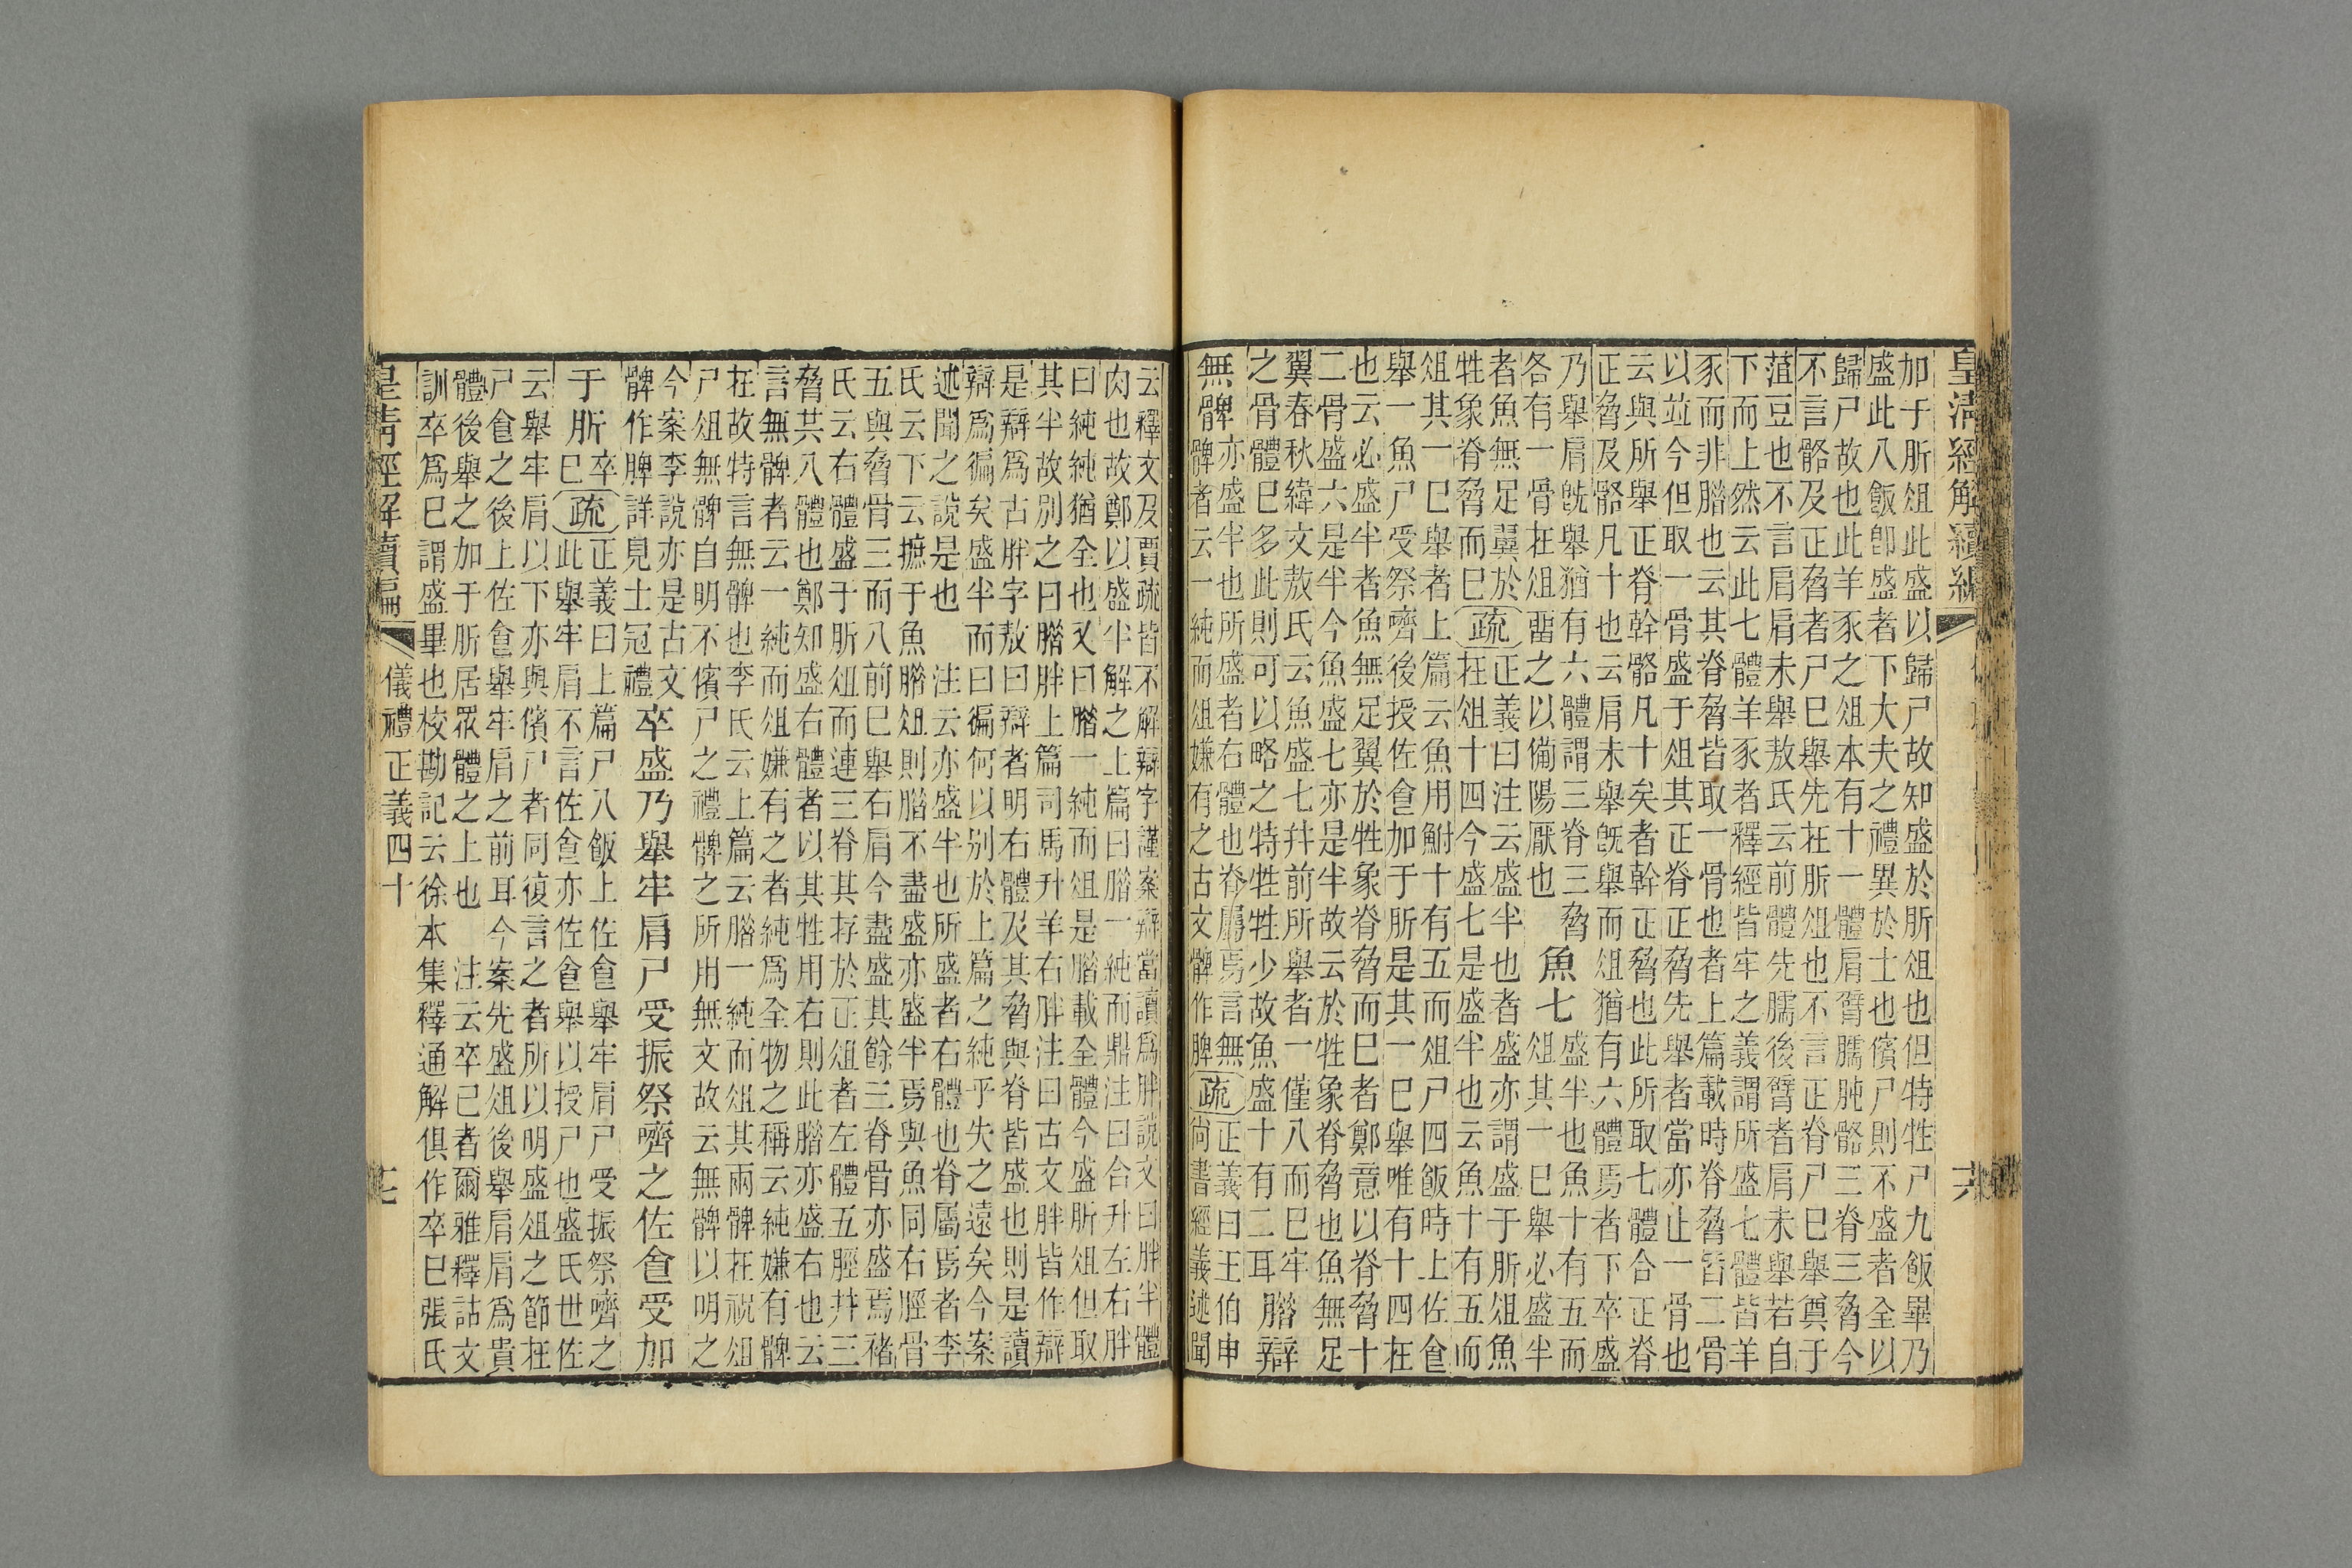 皇清經解續編
加于肵俎此盛以歸尸故知盛於肵俎也但特牲尸九飯畢乃
盛此八飯卽盛者下大夫之禮異於士也儐尸則不盛者全以
歸尸故也此羊豕之俎本有十一體肩臂臑肫骼三脊三脅今
不言骼及正脅者尸巳舉先在肵俎也不言正脊尸巳舉奠于
菹豆也不言肩肩未舉敖氏云前體先臑後臂者肩未舉若自
下而上然云此七體羊豕者釋經皆牢之義謂所盛七體皆羊
豕而非腊也云其脊脅皆取一骨也者上篇載時脊脅皆二骨
以竝今但取一骨盛于俎其正脊正脅先舉者當亦止一骨也
云與所舉正脊幹骼凡十矣者幹正脅也此所取七體合正脊
正脅及骼凡十也云肩未舉旣舉而俎猶有六體焉者下卒盛
乃舉肩旣舉猶有六體謂三脊三脅
各有一骨在俎畱之以備陽厭也
魚七
盛半也魚十有五而
俎其一巳舉必盛半
者魚無足翼於
牲象脊脅而巳
疏
正義曰注云盛半也者盛亦謂盛于肵俎魚
在俎十四今盛七是盛半也云魚十有五而
俎其一巳舉者上篇云魚用鮒十有五而俎尸四飯時上佐食
舉一魚尸受祭嚌後授佐食加于肵是其一巳舉唯有十四在
也云必盛半者魚無足翼於牲象脊脅而巳者鄭意以脊脅十
二骨盛六是半今魚盛七亦是半故云於牲象脊脅也魚無足
翼春秋緯文敖氏云魚盛七幷前所舉者一僅八而巳牢
之骨體巳多此則可以略之特牲牲少故魚盛十有二耳
腊辯
無髀
亦盛半也所盛者右體也脊屬焉言無
髀者云一純而俎嫌有之古文髀作脾
疏
正義曰王伯申
尚書經義述聞
云釋文及賈疏皆不解辯字謹案辯當讀爲胖說文曰胖半體
肉也故鄭以盛半解之上篇曰腊一純而鼎注曰合升左右胖
曰純純猶全也又曰腊一純而俎是腊載全體今盛肵俎但取
其半故別之曰腊胖上篇司馬升羊右胖注曰古文胖皆作辯
是辯爲古胖字敖曰辯者明右體及其脅與脊皆盛也則是讀
辯爲徧矣盛半而曰徧何以別於上篇之純乎失之遠矣今案
述聞之說是也 注云亦盛半也所盛者右體也脊屬焉者李
氏云下云摭于魚腊俎則腊不盡盛亦盛半焉與魚同右脛骨
五與脅骨三而八前巳舉右肩今盡盛其餘三脊骨亦盛焉褚
氏云右體盛于肵俎而連三脊其存於正俎者左體五脛幷三
脅共八體也鄭知盛右體者以其牲用右則此腊亦盛右也云
言無髀者云一純而俎嫌有之者純爲全物之稱云純嫌有髀
在故特言無髀也李氏云上篇云腊一純而俎其兩髀在祝俎
尸俎無髀自明不儐尸之禮髀之所用無文故云無髀以明之
今案李說亦是古文
髀作脾詳見士冠禮
卒盛乃舉牢肩尸受振祭嚌之佐食受加
于肵
卒
巳
疏
正義曰上篇尸八飯上佐食舉牢肩尸受振祭嚌之
此舉牢肩不言佐食亦佐食舉以授尸也盛氏世佐
云舉牢肩以下亦與儐尸者同復言之者所以明盛俎之節在
尸食之後上佐食舉牢肩之前耳今案先盛俎後舉肩肩爲貴
體後舉之加于肵居眾體之上也 注云卒巳者爾雅釋詁文
訓卒爲巳謂盛畢也校勘記云徐本集釋通解俱作卒巳張氏
皇淸經解續編
儀禮正義四十